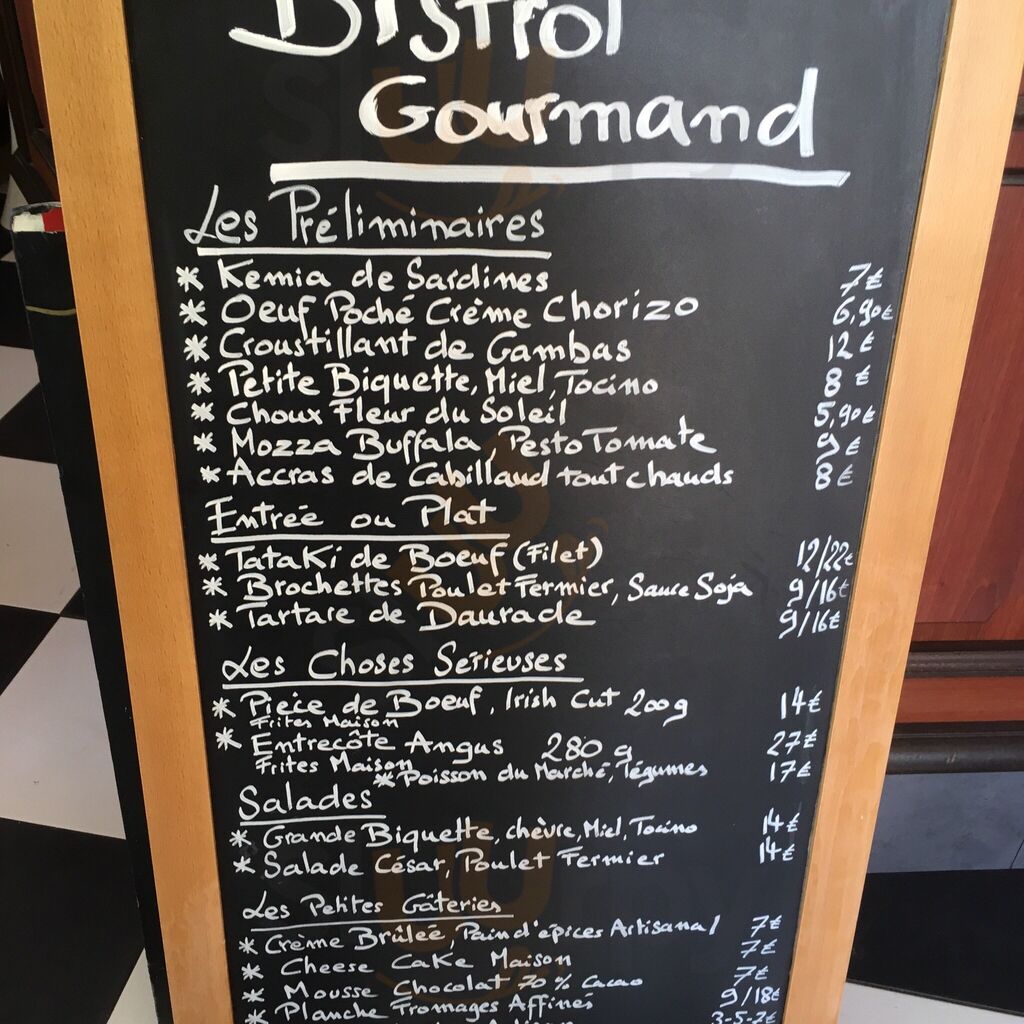 Bistrot
Gourmand
Les Préliminaires
* Kemia de Sardines 7€
* Oeuf Poché Crème Chorizo 6,90€
* Croustillant de Gambas 12€
* Petite Biquette, Miel, Tocino 8€
* Choux Fleur du Soleil 5,90€
* Mozza Buffala, Pesto Tomate 9€
* Accras de Cabillaud tout chauds 8€
Entreé ou Plat
* Tataki de Boeuf (Filet) 12/22€
* Brochettes Poulet Fermier, Sauce Soja 9/16€
* Tartare de Daurade 9/16€
Les Choses Sérieuses
* Pièce de Boeuf, Irish Cut 200g 14€
Frites Maison
* Entrecôte Angus 280 g 27€
Frites Maison
* Poisson du Marché, Légumes 17€
Salades
* Grande Biquette, chèvre, Miel, Tocino 14€
* Salade César, Poulet Fermier 14€
Les Petites Gâteries
* Crème Brûleé, Pain d'épices Artisanal 7€
* Cheese Cake Maison 7€
* Mousse Chocolat 70% Cacao 7€
* Planche Fromages Affinés 9/18€
3-5-7€